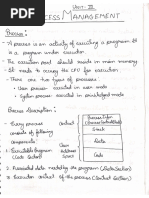 Unit - II
PROCESS MANAGEMENT
Process:-
• A process is an activity of executing a program. It is a program under execution.
• The execution point should reside in main memory
• It needs to carry the CPU for execution
• There are two types of process
• User process executed in user mode
• System process executed in privileged mode.
Process description:-
• Every process consists of following components:-
Context
User Address Space
Stack
Data
Code
1. Executable Program (Code Section)
2. Associated data needed by the program (Data Section)
3. Execution context of the process (Context Section)